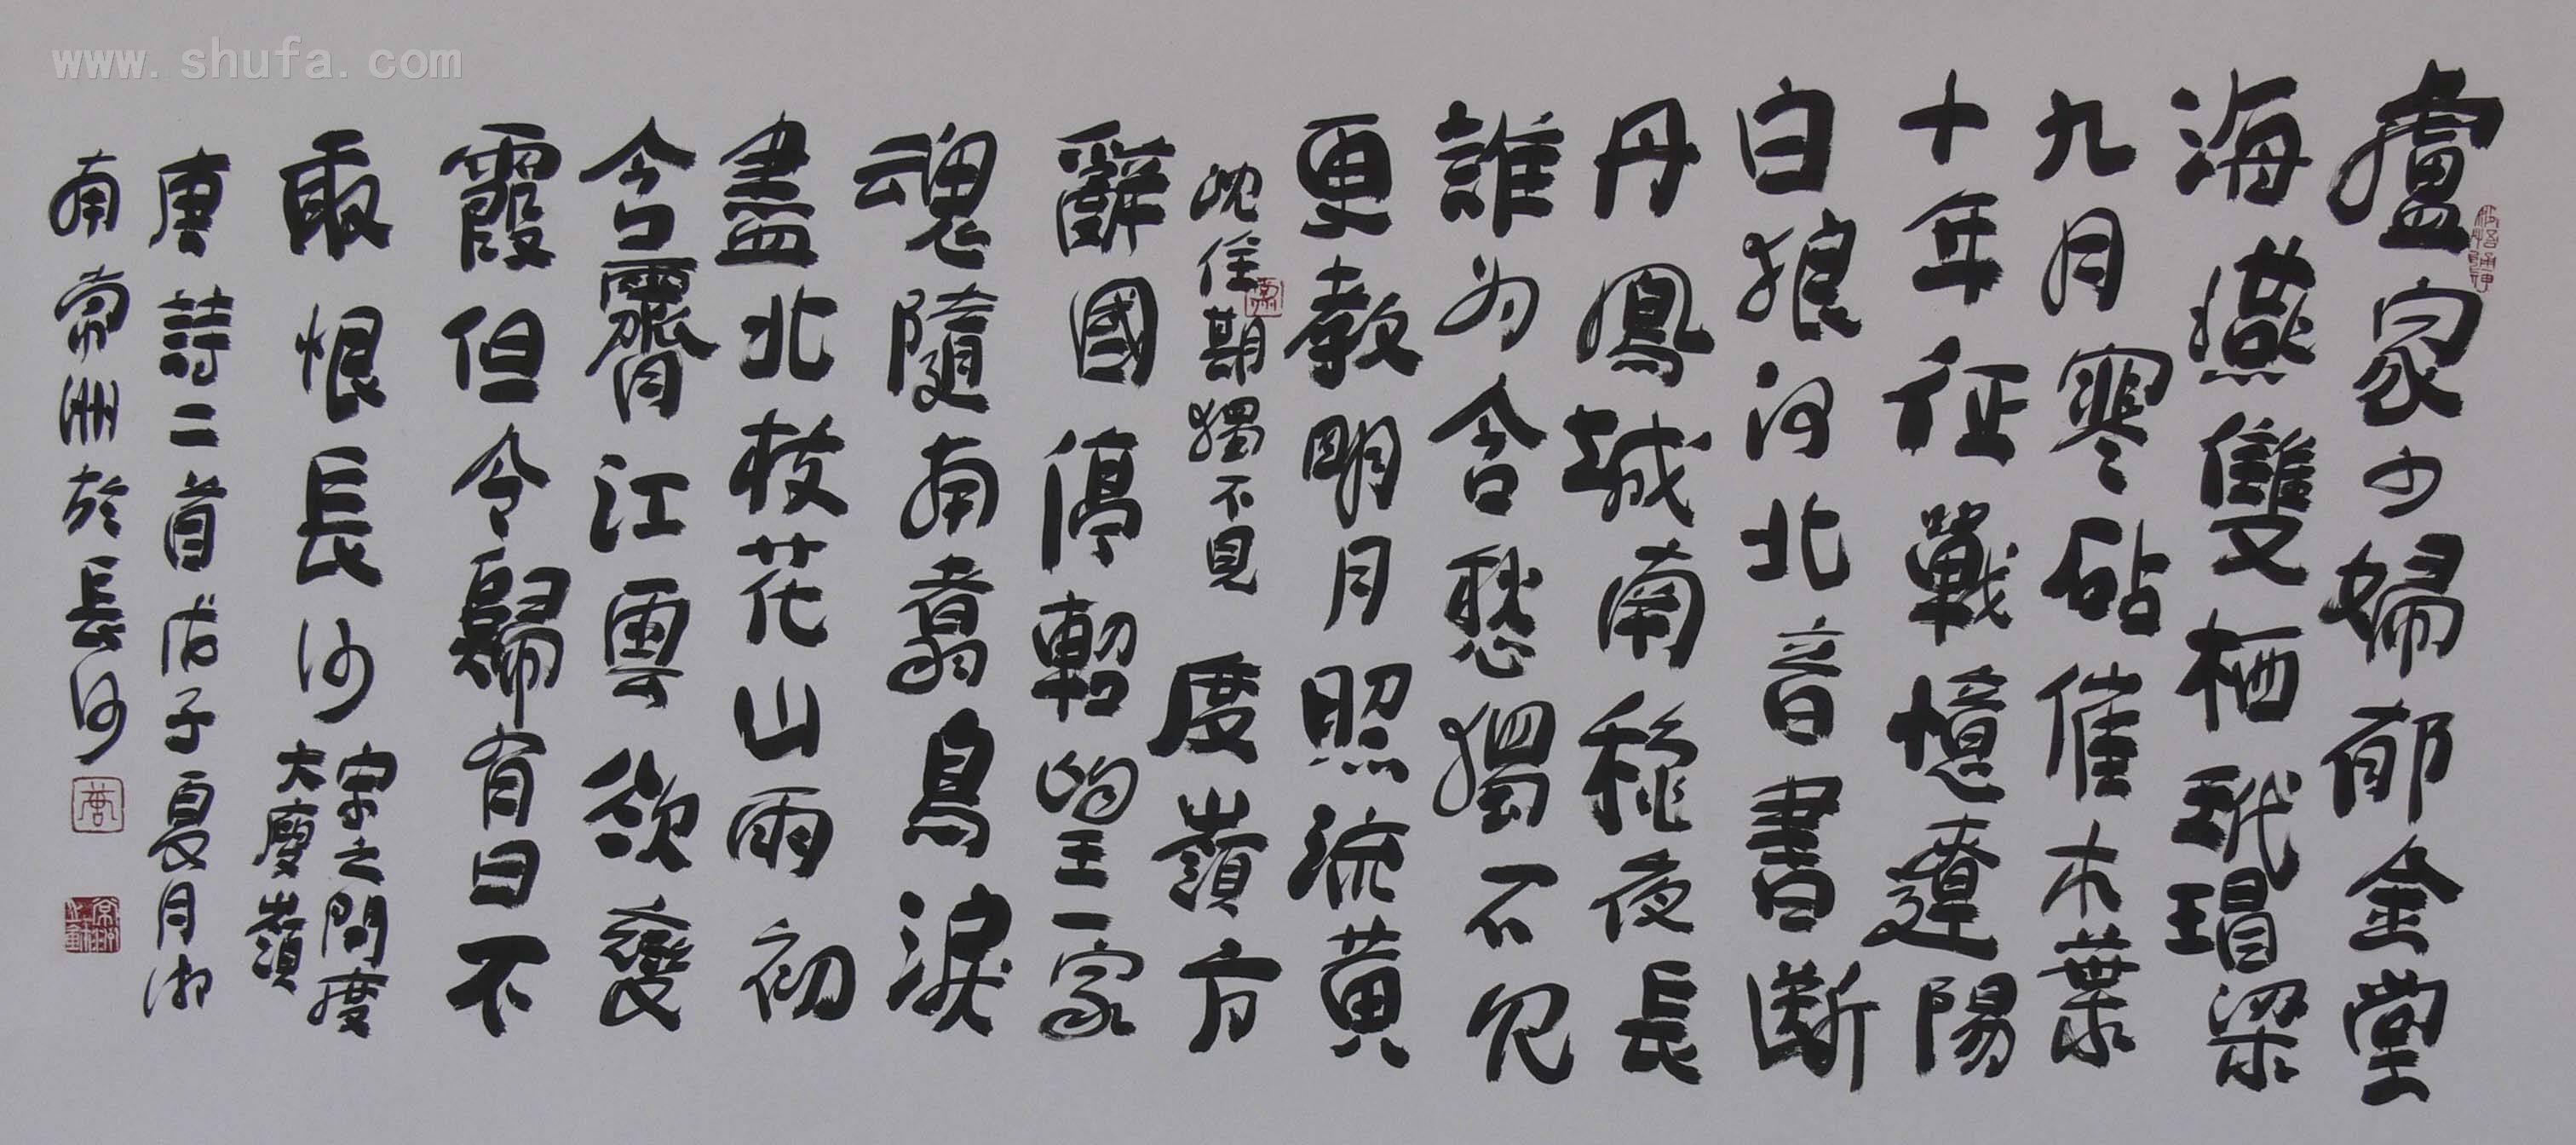 www.shufa.com
盧家少婦郁金堂
海燕雙栖玳瑁梁
九月寒砧催木葉
十年征戰憶遼陽
白狼河北音書断
丹鳳城南秋夜長
誰为含愁獨不见
更教明月照流黄
沈佺期獨不見 度嶺方
辭國停軺望一家
魂隨南翥鳥淚
盡北枝花山雨初
含霽江雲欲變
霞但令歸有日不
敢恨長沙 宋之問度
大庾嶺
唐詩二首戊子夏月湘
南常洲於長沙